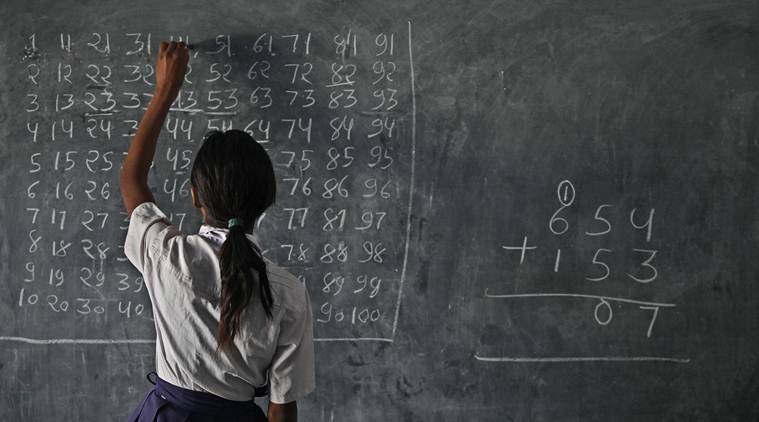 1 11 21 31 51 61 71 81 91
2 12 22 32 52 62 72 82 92
3 13 23 53 63 73 83 93
4 14 24 44 54 64 74 84 94
5 15 25 45 75 85 95
6 16 26 46 76 86 96
7 17 27 77 87 97
8 18 28 78 88 98
9 19 29 89 99
10 20 30 40 90 100
1
6 5 4
+ 1 5 3
0 7